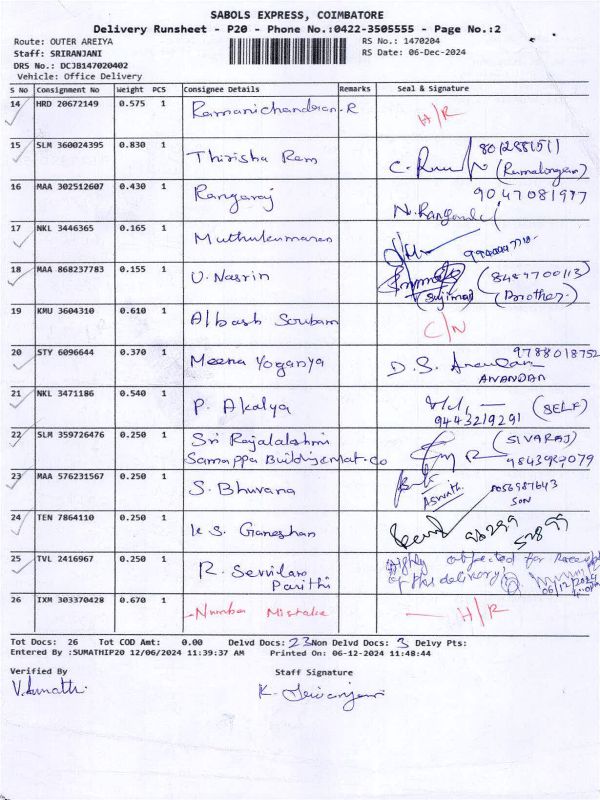 SABOLS EXPRESS, COIMBATORE
Delivery Runsheet - P20 - Phone No.:0422-3505555 - Page No.:2
Route: OUTER AREIYA
RS No.: 1470204
Staff: SRIRANJANI
RS Date: 06-Dec-2024
DRS No.: DCJB147020402
Vehicle: Office Delivery
S No Consignment No Weight PCS Consignee Details Remarks Seal & Signature
14 HRD 20672149 0.575 1 Ramanichandran.R H/R
15 SLM 360024395 0.830 1 Thirisha Ram
16 MAA 302512607 0.430 1 Rangaraj
17 NKL 3446365 0.165 1 Muthukumaran
18 MAA 868237783 0.155 1 U. Nasrin (8489700113
(Sujimad) (Brother.)
19 KMU 3604310 0.610 1 C/N
20 STY 6096644 0.370 1 Meena Yoganya 9788018752
D.S. Anandan
ANANDAN
21 NKL 3471186 0.540 1 P. Akalya (SELF)
9443219291
22 SLM 359726476 0.250 1 Sri Rajalakshmi (SIVARAJ)
Samappa Buildis Mat. Co
23 MAA 576231567 0.250 1 S. Bhuvana
Aswath SON
24 TEN 7864110 0.250 1 K S. Ganeshan
25 TVL 2416967 0.250 1 R. Sevvilam
Parithi
Highly objected for
of this delivery
06/12/2024
26 IXM 303370428 0.670 1 -Number Mistake — H/R
Tot Docs: 26 Tot COD Amt: 0.00 Delvd Docs: 23 Non Delvd Docs: 3 Delvy Pts:
Entered By :SUMATHIP20 12/06/2024 11:39:37 AM Printed On: 06-12-2024 11:48:44
Verified By Staff Signature
V. Sumathi K. Sriranjani